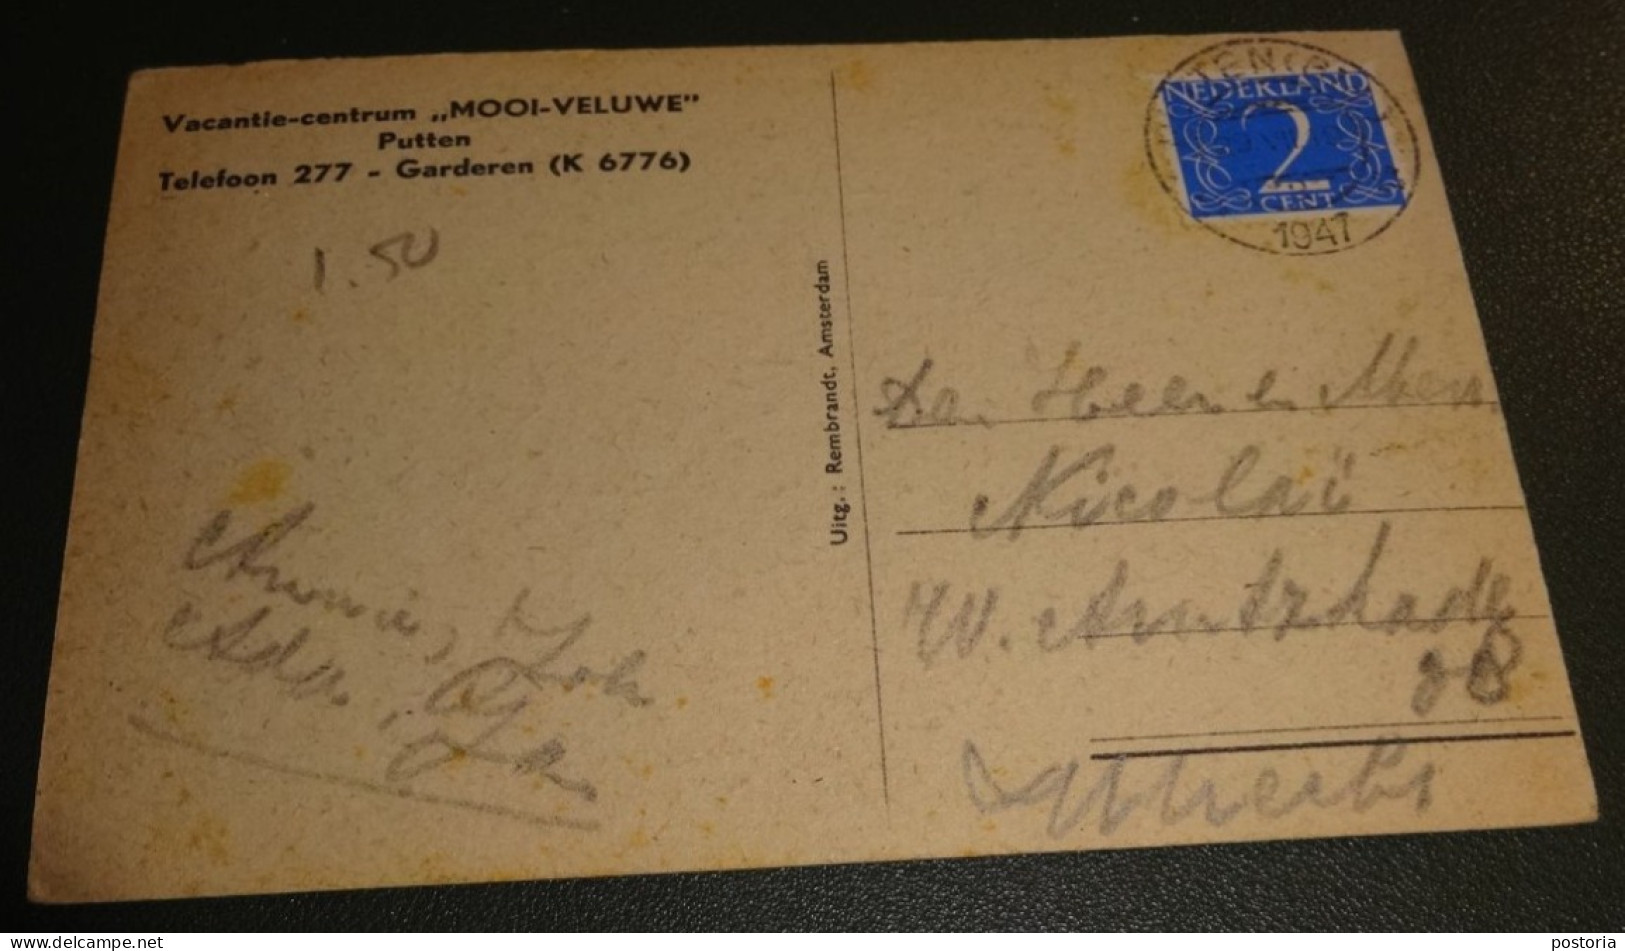 Vacantie-centrum „MOOI-VELUWE”
Putten
Telefoon 277 - Garderen (K 6776)
1.50
Annie, Joh
Ada,
Uitg.: Rembrandt, Amsterdam
NEDERLAND
2
CENT
1947
Heer en Mevr.
Nicolaï
W. Arntzkade
Utrecht
delcampe.net
postoria